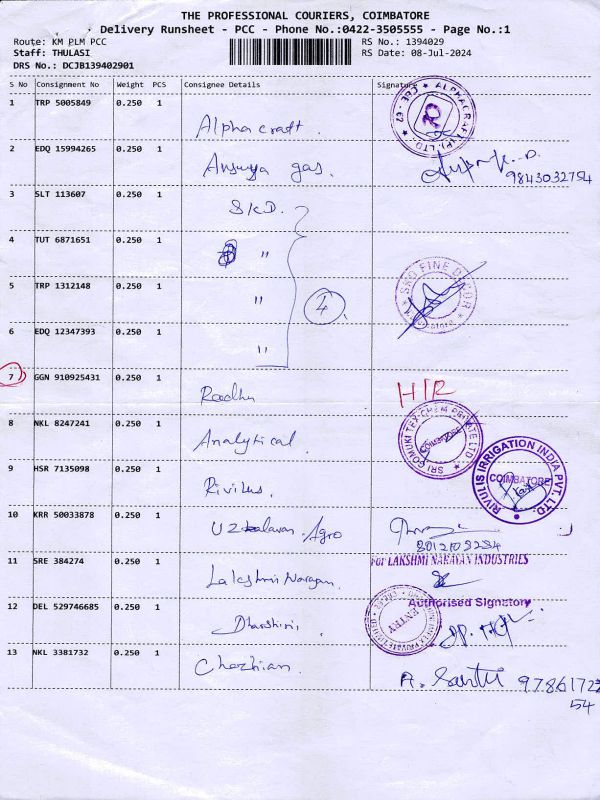 THE PROFESSIONAL COURIERS, COIMBATORE
Delivery Runsheet - PCC - Phone No.:0422-3505555 - Page No.:1
Route: KM PLM PCC RS No.: 1394029
Staff: THULASI RS Date: 08-Jul-2024
DRS No.: DCJB139402901
S No Consignment No Weight PCS Consignee Details Signature
1 TRP 5005849 0.250 1
Alpha craft.
ALPHACRAFT (P) LTD. CBE - 29
2 EDQ 15994265 0.250 1
Ansuya gas.
9843032754
3 SLT 113607 0.250 1
S.K.D.
4 TUT 6871651 0.250 1
"
5 TRP 1312148 0.250 1
"
4
SKD FINE DECOR
6 EDQ 12347393 0.250 1
"
7 GGN 910925431 0.250 1
Radha
HTR
8 NKL 8247241 0.250 1
Analytical.
SRI GOMUKI TEX CHEM PRIVATE LTD. COIMBATORE
9 HSR 7135098 0.250 1
Rivilus.
RIVULIS IRRIGATION INDIA PVT. LTD. COIMBATORE
10 KRR 50033878 0.250 1
Agro
11 SRE 384274 0.250 1
Lakshmi Narayan.
For LAKSHMI NARAYAN INDUSTRIES
Authorised Signatory
12 DEL 529746685 0.250 1
Dharshini.
ENTRY
13 NKL 3381732 0.250 1
Chezhian.
A. 97861722
54